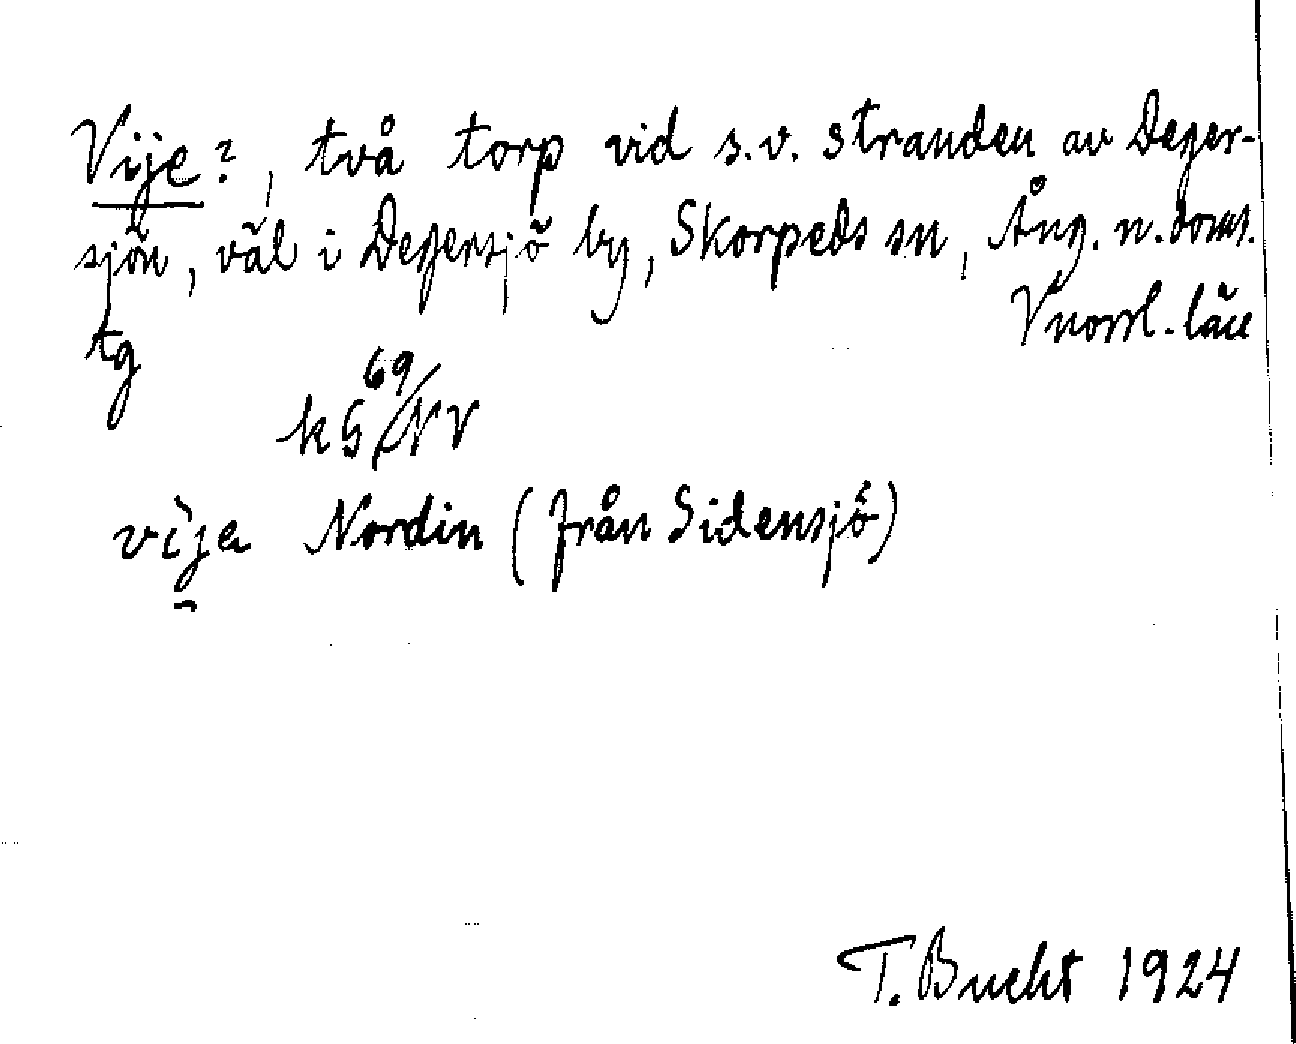 Vije?, två torp vid s.v. stranden av Deger-
sjön, väl i Degersjö by, Skorpeds sn, Ång. n. doms.
tg Vnorrl. län
kG 69/NV
vìja Nordin (från Sidensjö)
T. Bucht 1924